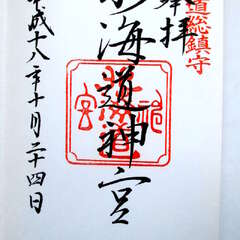 奉拝
道総鎮守
北海道神宮
平成十八年十月二十四日